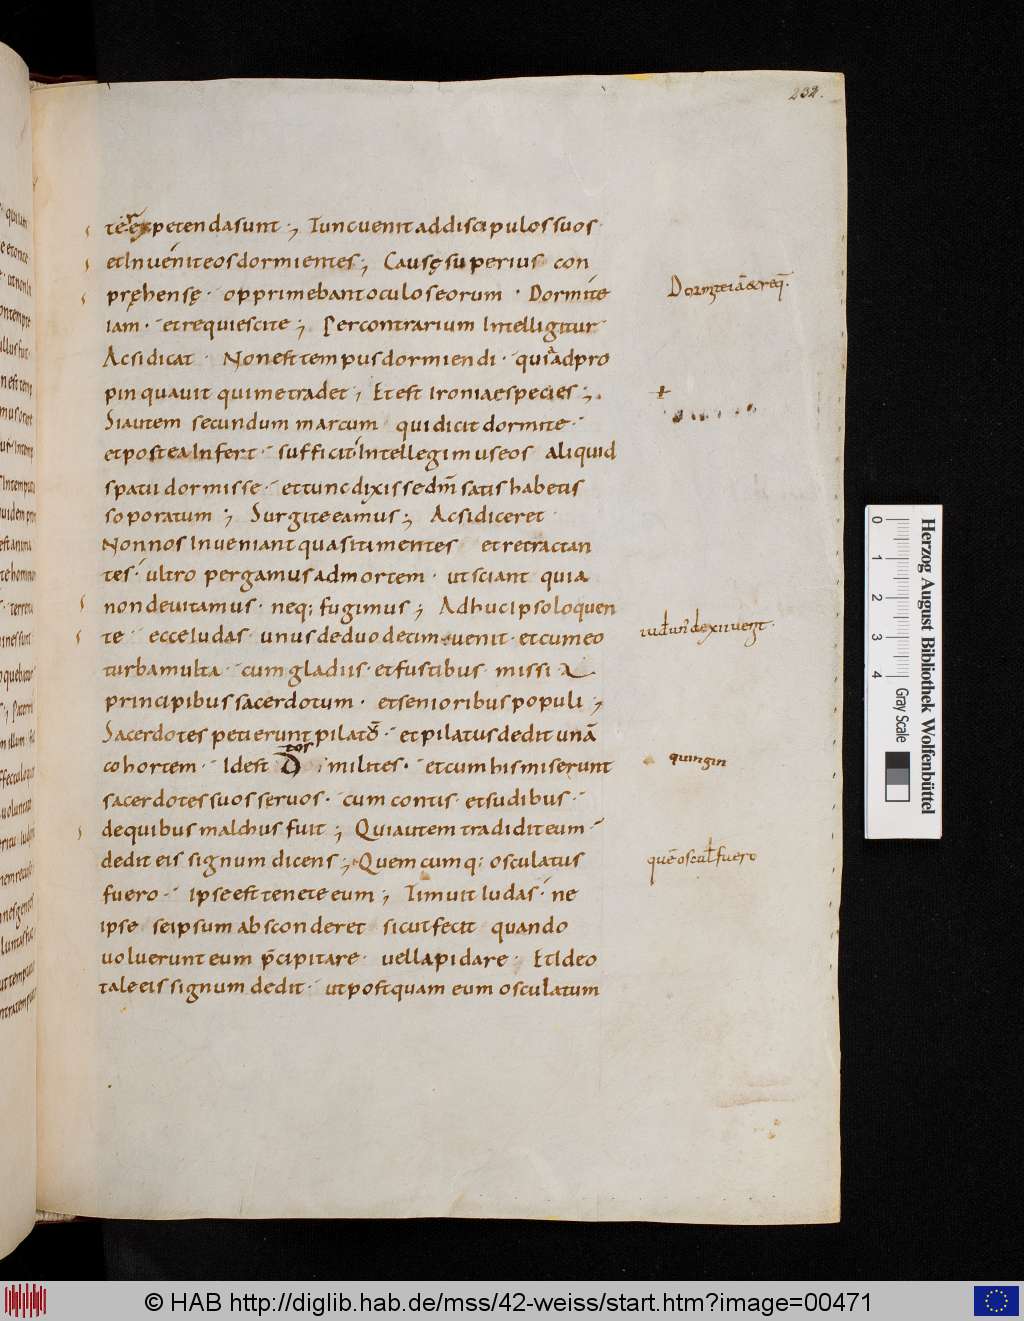 232.
ter expetenda sunt ; Tunc uenit ad discipulos suos ·
et Inuenit eos dormientes ; Causę superius con
pręhensę · opprimebant oculos eorum · Dormite
iam · et requiescite ; Per contrarium Intelligitur
Ac si dicat · Non est tempus dormiendi · quia adpro
pinquauit qui me tradet ; Et est ironiae species ;
Si autem secundum marcum qui dicit dormite ·
et postea Infert · sufficit Intellegimus eos aliquid
spatii dormisse · et tunc dixisse dñm satis habetis
soporatum ; Surgite eamus ; Ac si diceret ·
Non nos Inueniant quasi timentes et retractan
tes · ultro pergamus ad mortem · ut sciant quia
non deuitamus · neq; fugimus ; Adhuc Ipso loquen
te ecce Iudas unus de duodecim uenit · et cum eo
turba multa · cum gladiis · et fustibus missi a
principibus sacerdotum · et senioribus populi ;
Sacerdotes petierunt pilatō · et pilatus dedit unā
cohortem · Id est D̄tos milites · et cum his miserunt
sacerdotes suos seruos · cum contis et sudibus ·
de quibus malchus fuit ; Qui autem tradidit eum ·
dedit eis signum dicens ; Quemcumq; osculatus
fuero · ipse est tenete eum ; Timuit Iudas · ne
ipse seipsum absconderet sicut fecit quando
uoluerunt eum p̄cipitare · uel lapidare · Et Ideo
tale eis signum dedit · ut postquam eum osculatum
Dormite iā & req̄ ·
iud un' de xii uenit ·
quingin
quē oscul fuero
0 1 2 3 4
Herzog August Bibliothek Wolfenbüttel
Gray Scale
© HAB http://diglib.hab.de/mss/42-weiss/start.htm?image=00471